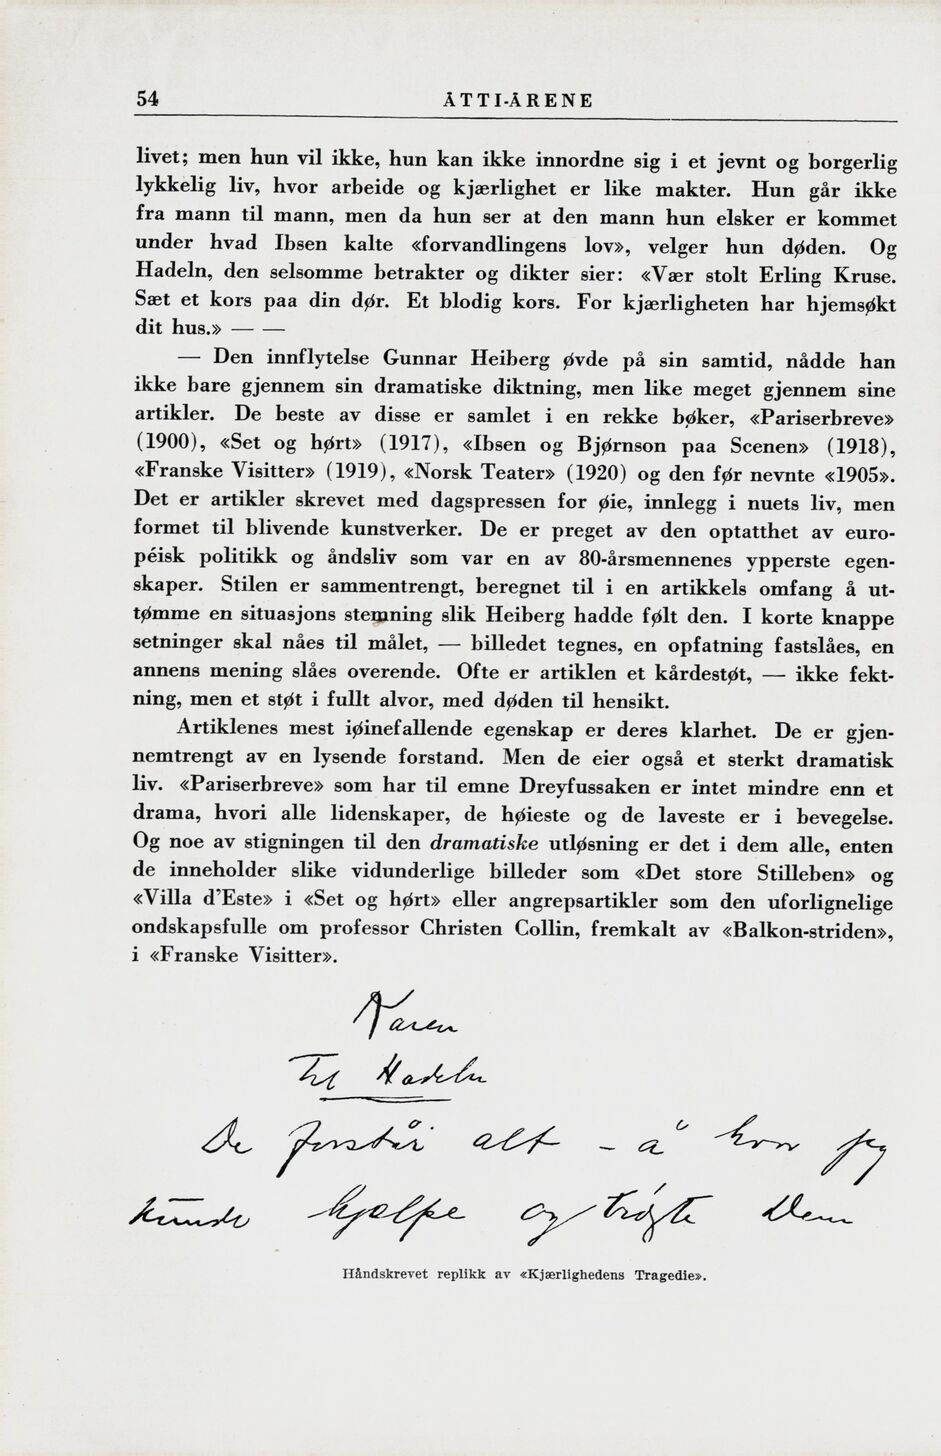 54
ÅTTI-ÅRENE
livet; men hun vil ikke, hun kan ikke innordne sig i et jevnt og borgerlig
lykkelig liv, hvor arbeide og kjærlighet er like makter. Hun går ikke
fra mann til mann, men da hun ser at den mann hun elsker er kommet
under hvad Ibsen kalte «forvandlingens lov», velger hun døden. Og
Hadeln, den selsomme betrakter og dikter sier: «Vær stolt Erling Kruse.
Sæt et kors paa din dør. Et blodig kors. For kjærligheten har hjemsøkt
dit hus.» — —
— Den innflytelse Gunnar Heiberg øvde på sin samtid, nådde han
ikke bare gjennem sin dramatiske diktning, men like meget gjennem sine
artikler. De beste av disse er samlet i en rekke bøker, «Pariserbreve»
(1900), «Set og hørt» (1917), «Ibsen og Bjørnson paa Scenen» (1918),
«Franske Visitter» (1919), «Norsk Teater» (1920) og den før nevnte «1905».
Det er artikler skrevet med dagspressen for øie, innlegg i nuets liv, men
formet til blivende kunstverker. De er preget av den optatthet av euro-
péisk politikk og åndsliv som var en av 80-årsmennenes ypperste egen-
skaper. Stilen er sammentrengt, beregnet til i en artikkels omfang å ut-
tømme en situasjons stemning slik Heiberg hadde følt den. I korte knappe
setninger skal nåes til målet, — billedet tegnes, en opfatning fastslåes, en
annens mening slåes overende. Ofte er artiklen et kårdestøt, — ikke fekt-
ning, men et støt i fullt alvor, med døden til hensikt.
Artiklenes mest iøinefallende egenskap er deres klarhet. De er gjen-
nemtrengt av en lysende forstand. Men de eier også et sterkt dramatisk
liv. «Pariserbreve» som har til emne Dreyfussaken er intet mindre enn et
drama, hvori alle lidenskaper, de høieste og de laveste er i bevegelse.
Og noe av stigningen til den dramatiske utløsning er det i dem alle, enten
de inneholder slike vidunderlige billeder som «Det store Stilleben» og
«Villa d'Este» i «Set og hørt» eller angrepsartikler som den uforlignelige
ondskapsfulle om professor Christen Collin, fremkalt av «Balkon-striden»,
i «Franske Visitter».
Karen
Til Hadeln
De forstår alt – å hvor jeg
kunde hjælpe og trøste Dem
Håndskrevet replikk av «Kjærlighedens Tragedie».